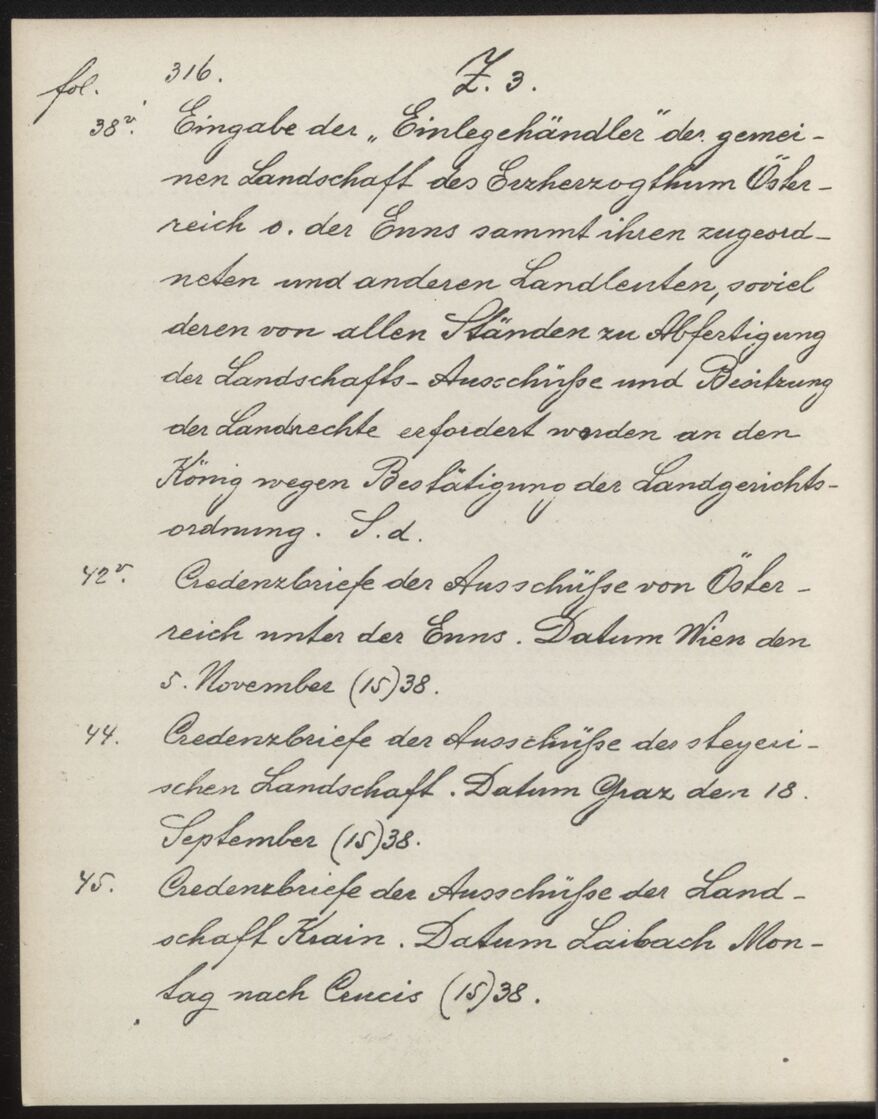 fol. 316. Z. 3.
38v. Eingabe der „Einlegehändler" der gemei-
nen Landschaft des Erzherzogthum Öster-
reich o. der Enns sammt ihren zugeord-
neten und anderen Landleuten, soviel
deren von allen Ständen zu Abfertigung
der Landschafts-Ausschüße und Besitzung
der Landrechte erfordert worden an den
König wegen Bestätigung der Landgerichts-
ordnung. S. d.
42v. Credenzbriefe der Ausschüße von Öster-
reich unter der Enns. Datum Wien den
5. November (15)38.
44. Credenzbriefe der Ausschüße der steyeri-
schen Landschaft. Datum Graz den 18.
September (15)38.
45. Credenzbriefe der Ausschüße der Land-
schaft Krain. Datum Laibach Mon-
tag nach Crucis (15)38.